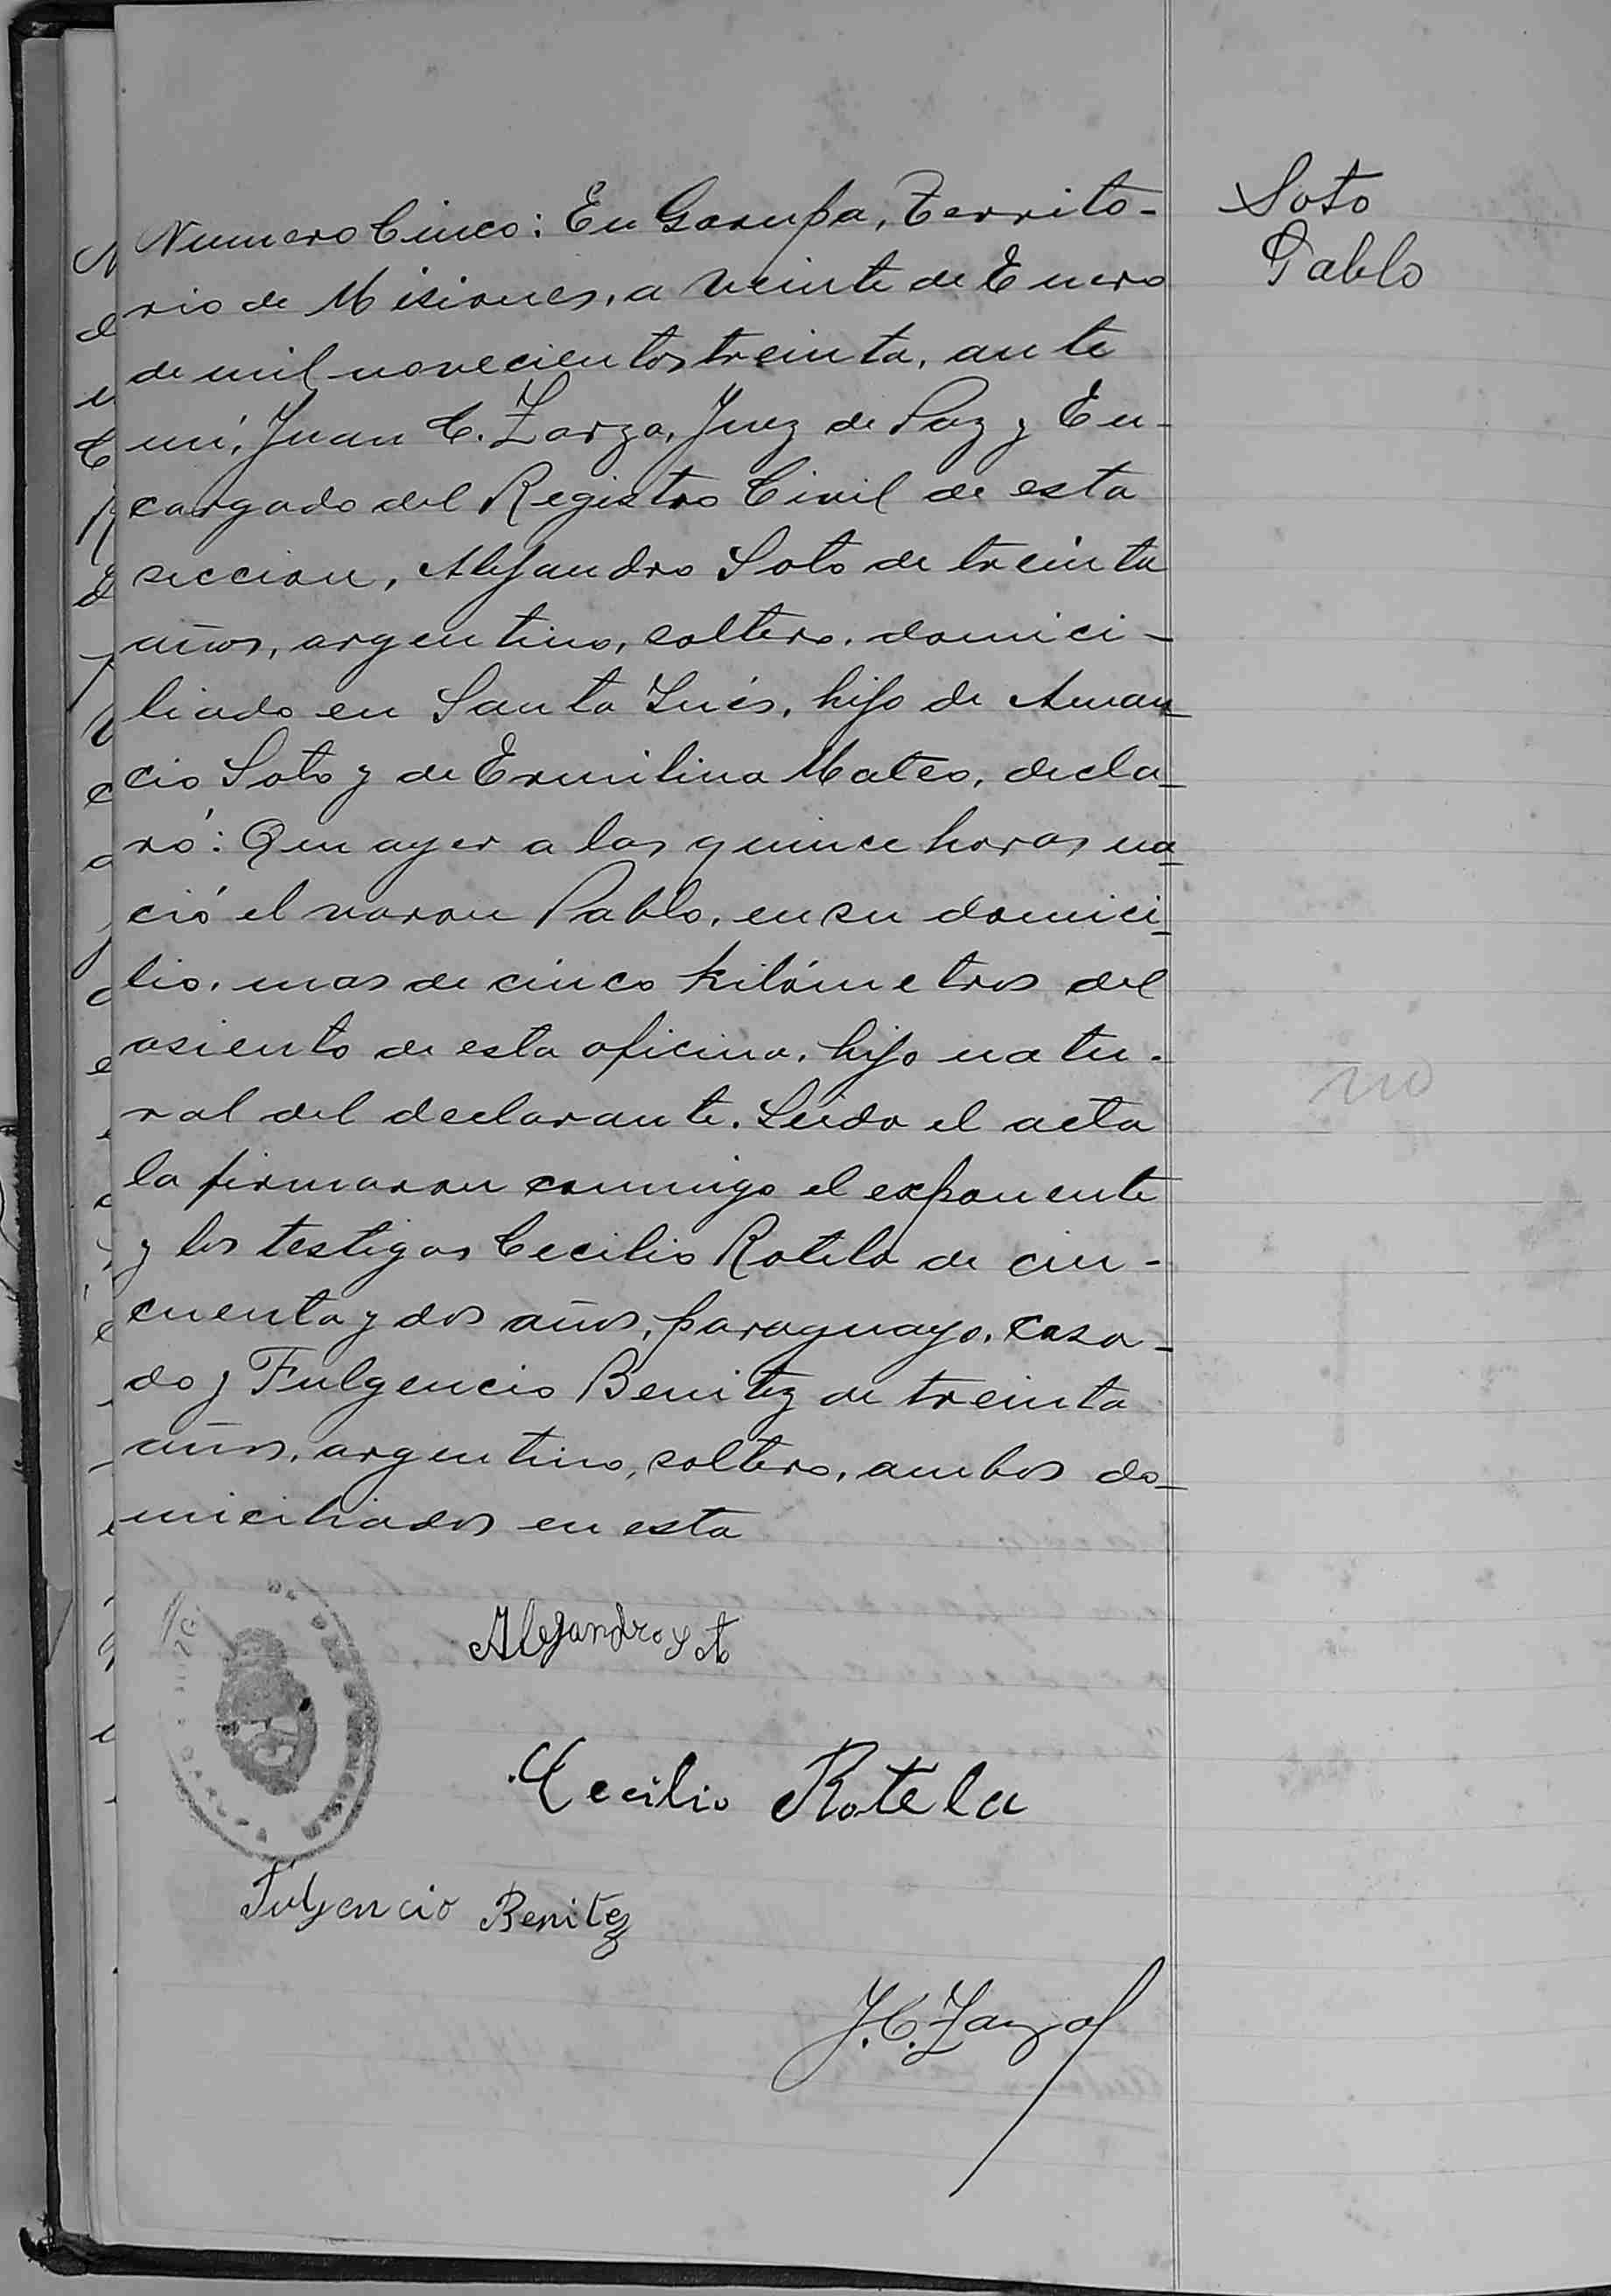 Soto
Pablo
Numero Cinco: En Garupa, Territo-
rio de Misiones, a veinte de Enero
de mil novecientos treinta, ante
mí, Juan C. Zarza, Juez de Paz y En-
cargado del Registro Civil de esta
seccion, Alejandro Soto de treinta
años, argentino, soltero, domici-
liado en Santa Inés, hijo de Aman-
cio Soto y de Ermilina Mateo, decla-
ró: Que ayer a las quince horas na-
ció el varon Pablo, en su domici-
lio, mas de cinco kilómetros del
asiento de esta oficina, hijo natu-
ral del declarante. Leida el acta
la firmaron conmigo el exponente
y los testigos Cecilio Rotela de cin-
cuenta y dos años, paraguayo, casa-
do y Fulgencio Benitez de treinta
años, argentino, soltero, ambos do-
miciliados en esta
Alejandro Soto
Cecilio Rotela
Fulgencio Benitez
J. C. Zarza